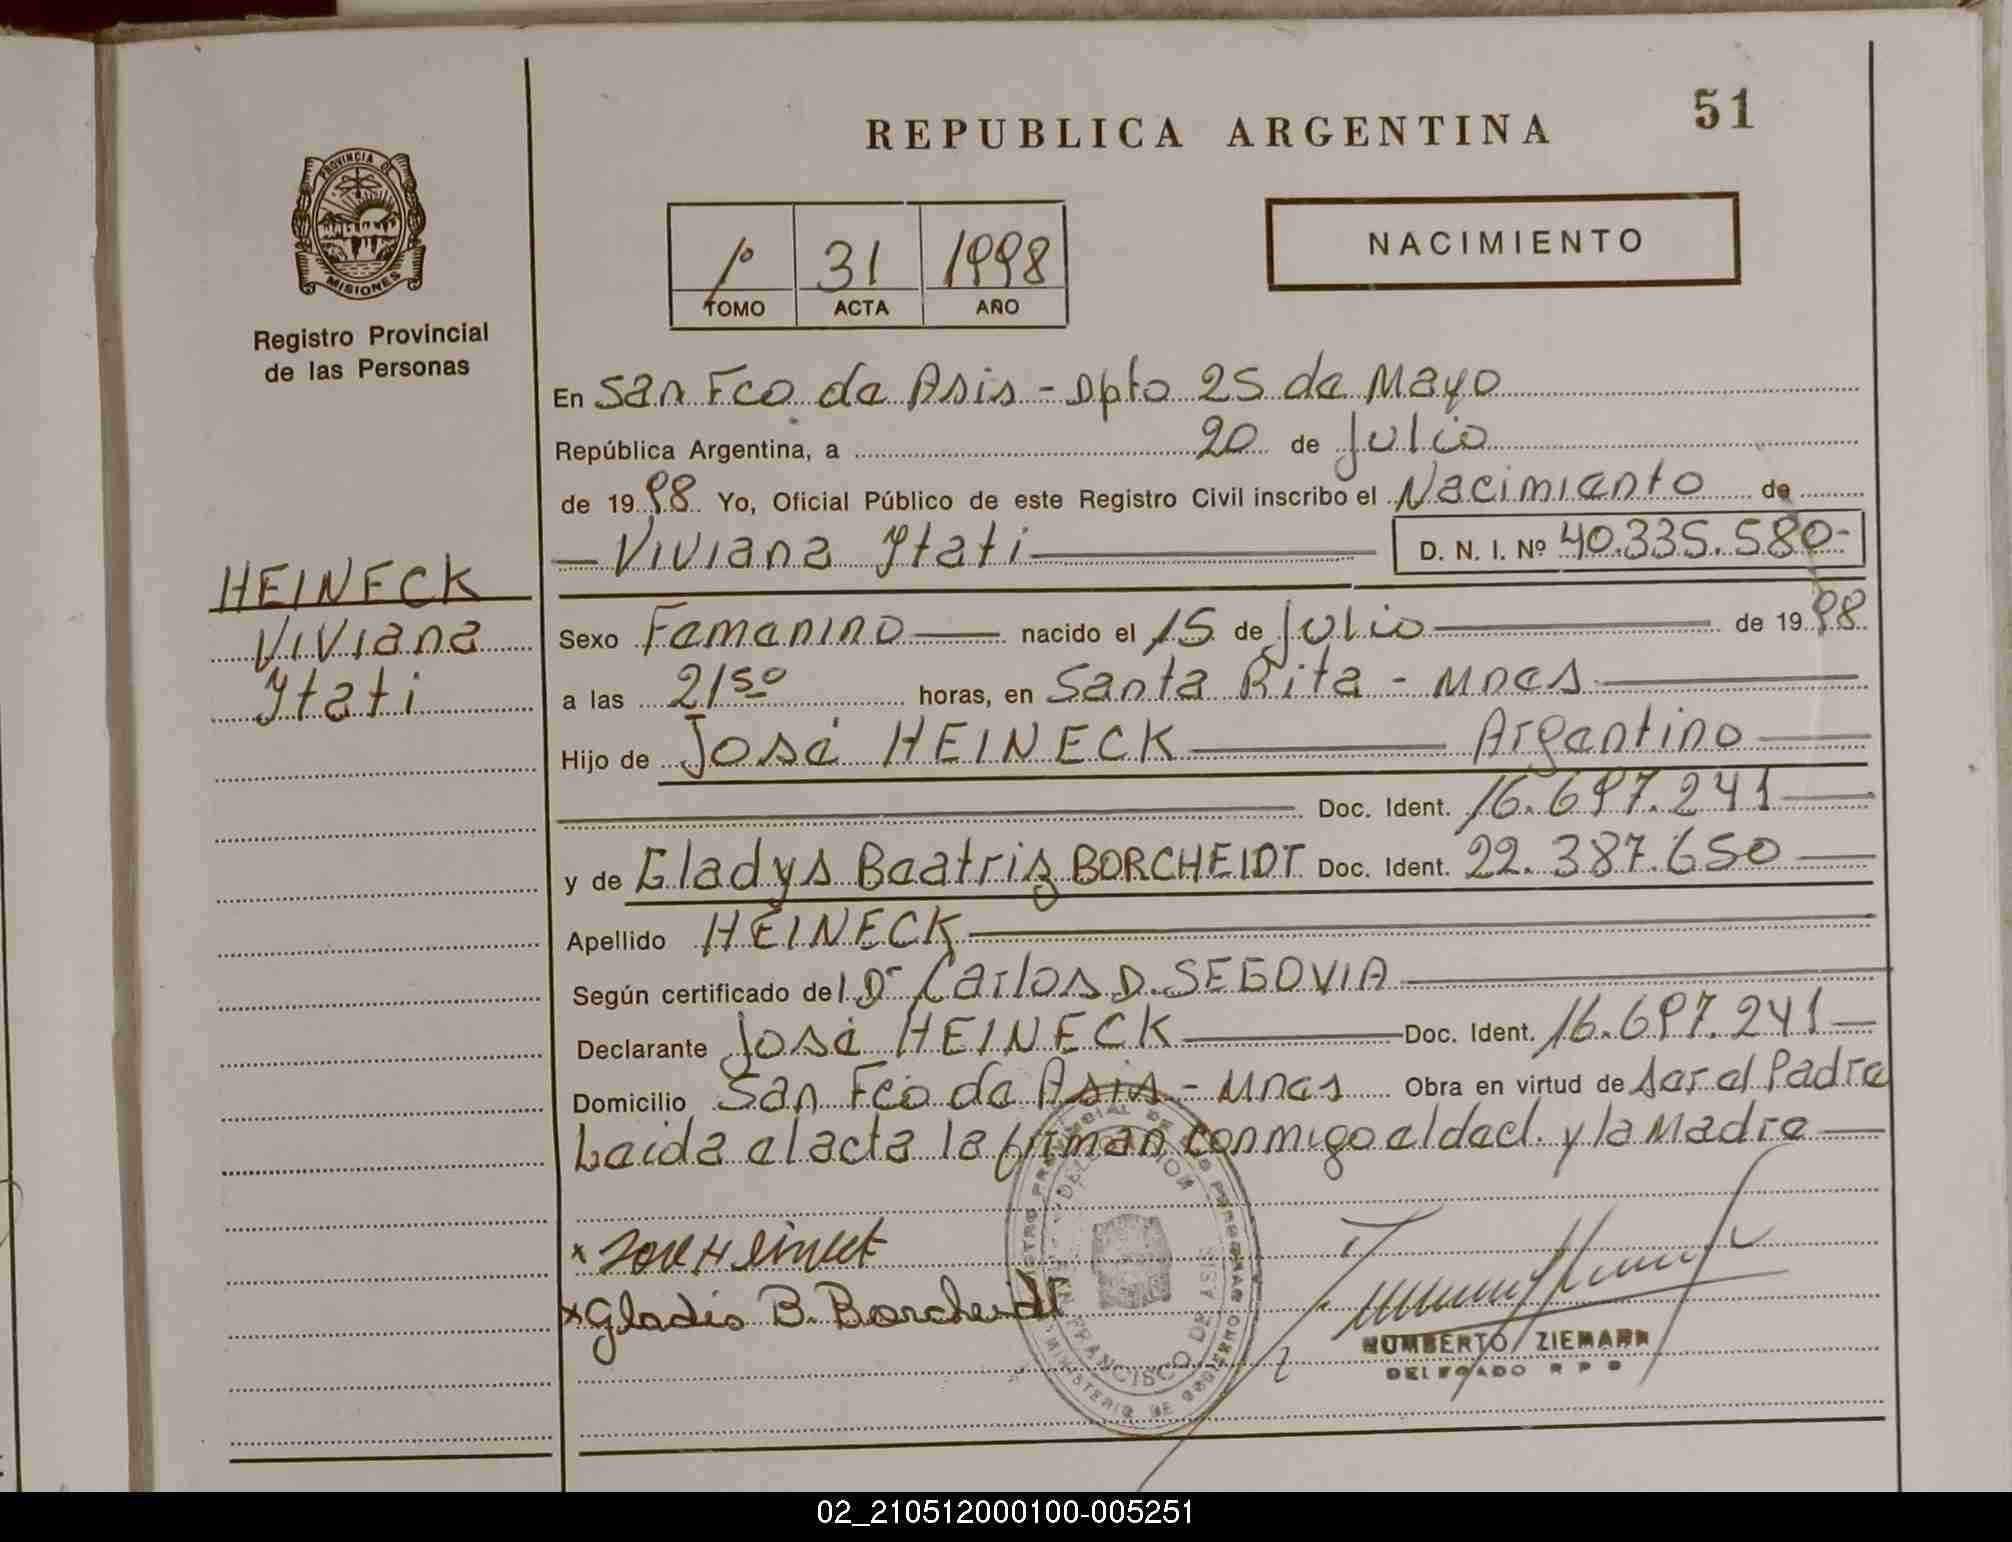 REPUBLICA ARGENTINA
51
PROVINCIA DE
MISIONES
Registro Provincial
de las Personas
1º 31 1998
TOMO ACTA AÑO
NACIMIENTO
En San Fco de Asis - Dpto 25 de Mayo
República Argentina, a 20 de Julio
de 1998 Yo, Oficial Público de este Registro Civil inscribo el Nacimiento de
Viviana Ytati D. N. I. Nº 40.335.580-
HEINECK
Viviana
Ytati
Sexo Femenino nacido el 15 de Julio de 1998
a las 21 50 horas, en Santa Rita - Mnes
Hijo de José HEINECK Argentino
Doc. Ident. 16.697.241
y de Gladys Beatriz BORCHEIDT Doc. Ident. 22.387.650
Apellido HEINECK
Según certificado del Dr Carlos D. SEGOVIA
Declarante José HEINECK Doc. Ident. 16.697.241
Domicilio San Fco de Asis - Mnes Obra en virtud de ser el Padre
Leida el acta la firman conmigo el decl. y la Madre
x José Heineck
x Gladis B. Borcheidt
SAN FRANCISCO DE ASIS
MINISTERIO DE GOBIERNO
HUMBERTO ZIEMANN
DELEGADO R P P
02_210512000100-005251